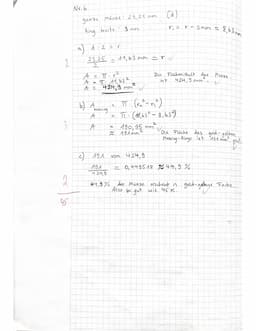 Nr. 6
ganze Münze: 23,25 mm (d)
Ring breite: 3 mm r₁ = r - 3 mm = 8,63 mm
a) d : 2 = r
23,25 / 2 = 11,63 mm = r
A = π · r²
A = π · 11,63²
A = 424,9 mm²
Der Flächeninhalt der Münze ist 424,9 mm².
b) A = π · (rₐ² - rᵢ²)
A = π · (11,63² - 8,63²)
A = 190,95 mm²
≈ 191 mm²
Die Fläche des gold-gelben Messing-Rings ist 191 mm² gut.
c) 191 von 424,9
191 / 424,9 = 0,449518 ≈ 44,9 %
44,9 % der Münze
in gold-gelber Farbe.
Also so gut wie 45 %.
2
3
2
8